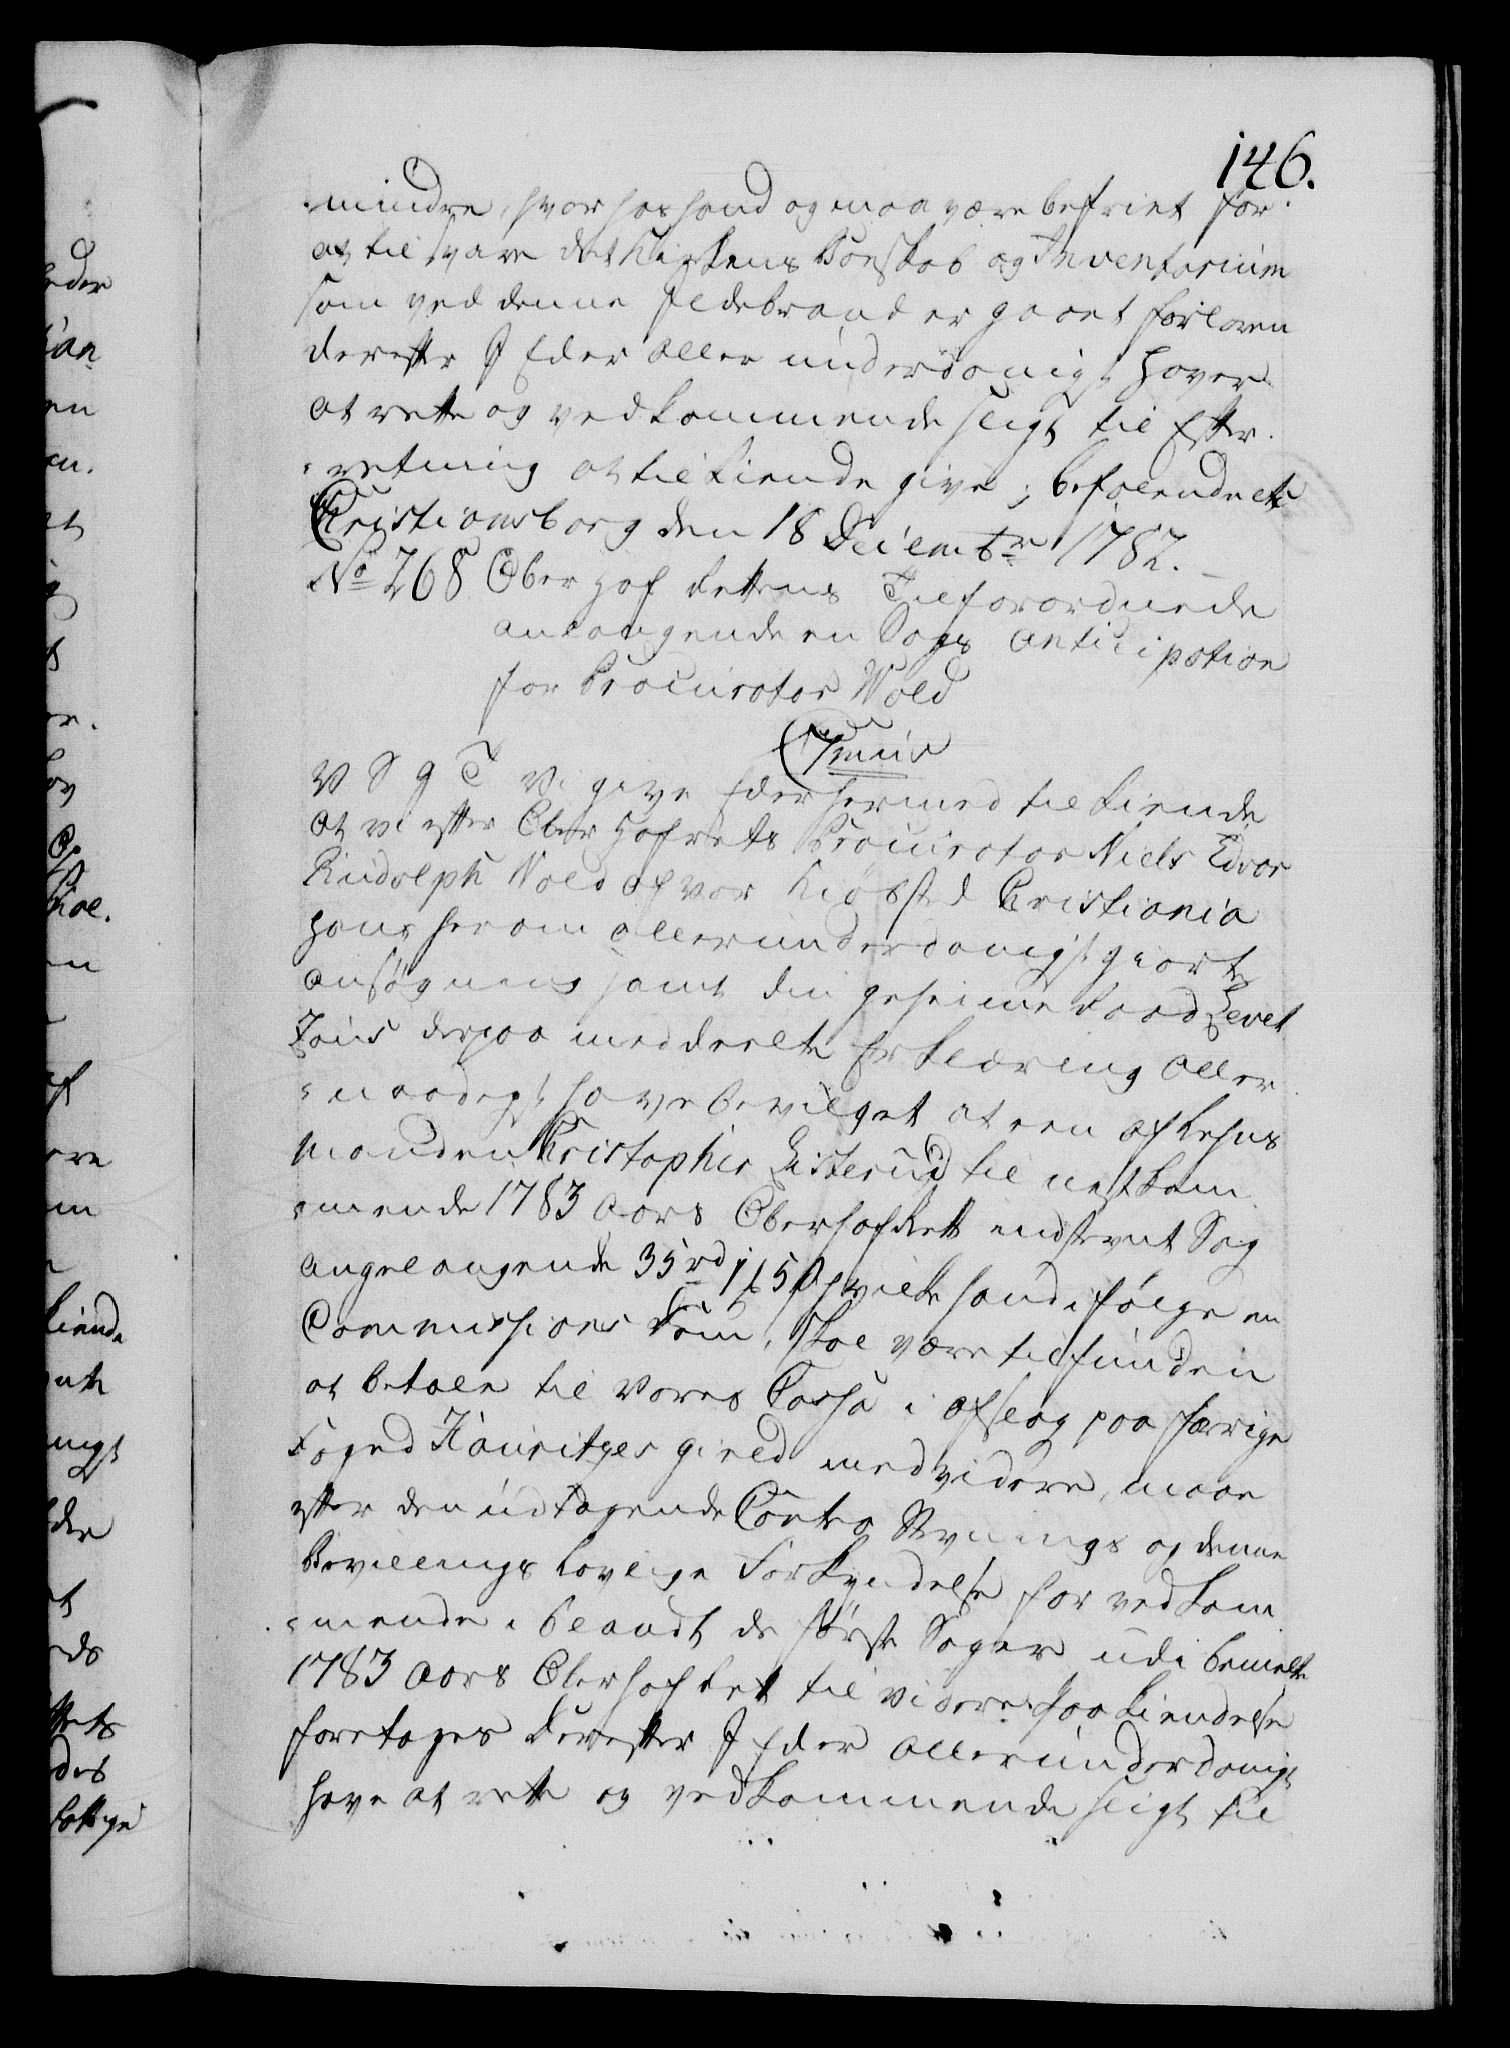 146.
mindre, hvorhos hand og maa være befriet for
at til svare det Kirkens Boeskab og Inventarium
som ved denne Ildebrand er gaaet forloren
derefter I Eder allerunderdanigst haver
at rette og vedkommende sligt til Efter¬
retning at tilkiende give; befalende etc
Christiansborg den 18 Decembr 1782.
No 268 Ober Hof Rettens Tilforordnede
anlangende en Sags Anticipation
for Procurator Wold
V S G T Vi give Eder hermed tilkiende
at vi efter Ober Hofrets Procurator Niels Edvor
Rudolph Wold af vor Kiøbsted Christiania
hans herom allerunderdanigst giorte
Ansøgning samt din geheime Raad Levet
Zaus derpaa meddeelte Erklæring aller
naadigst have bevilget at een af Lehns
manden Christopher Listerud til nestkom
mende 1783 Aars Oberhofret indstevnt Sag
angelangende 35 rd 1 5 s hvilke hand ifølge en
Commissions Dom, skal være tilfunden
at betale til vores Cassa i afslag paa forrige
Foged Hauritzes gield med videre, maae
efter den udtagende Contra Stevnings og denne
Bevillings lovlige Forkyndelse for vedkom
mende, blandt de første Sager udi bemelte
1783 Aars Oberhofret til videre Paakiendelse
foretages Derefter I Eder allerunderdanigst
have at rette og vedkommende sligt til